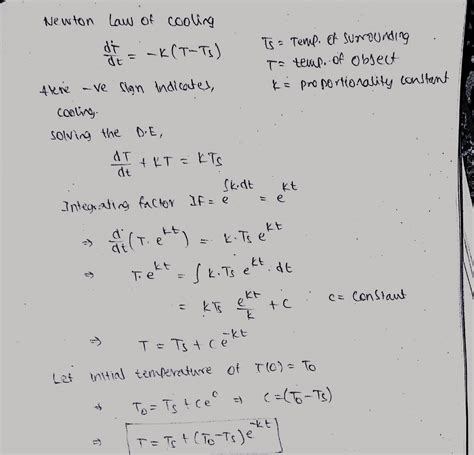 Newton Law of cooling
dT/dt = -K(T-Ts)
Ts = Temp. of surrounding
T = temp. of object
k = proportionality constant
Here -ve sign indicates,
cooling.
solving the D.E,
dT/dt + KT = KTs
Integrating factor IF = e^∫k.dt = e^kt
⇒ d/dt (T. e^kt) = k.Ts e^kt
⇒ T.e^kt = ∫ k.Ts e^kt . dt
= KTs e^kt/k + C
c = constant
⇒ T = Ts + Ce^-kt
Let initial temperature of T(0) = To
⇒ To = Ts + Ce^0 ⇒ C = (To - Ts)
⇒ T = Ts + (To - Ts) e^-kt